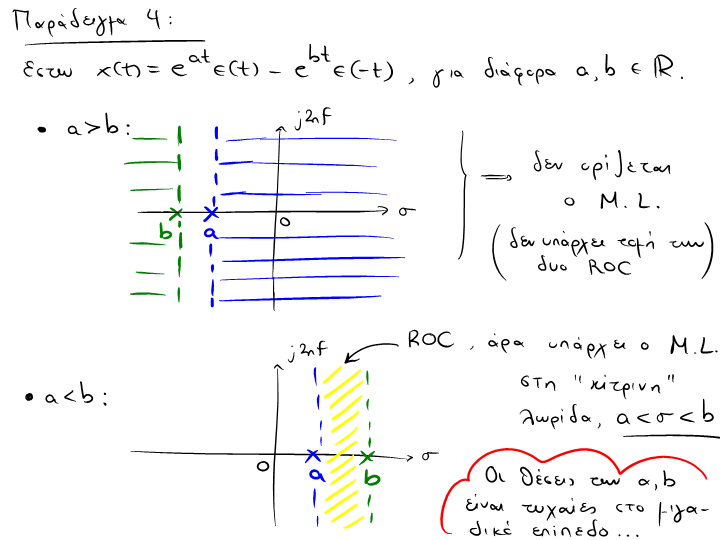 Παράδειγμα 4:
Έστω x(t) = e^{at}ε(t) - e^{bt}ε(-t), για διάφορα a, b ∈ ℝ.
• a > b:
j2πf
σ
b
a
0
⟹ δεν ορίζεται
ο M.L.
(δεν υπάρχει τομή των
δυο ROC)
• a < b:
j2πf
σ
0
a
b
ROC, άρα υπάρχει ο M.L.
στη "κίτρινη"
λωρίδα, a < σ < b
Οι θέσεις των a, b
είναι τυχαίες στο μιγα-
δικό επίπεδο...